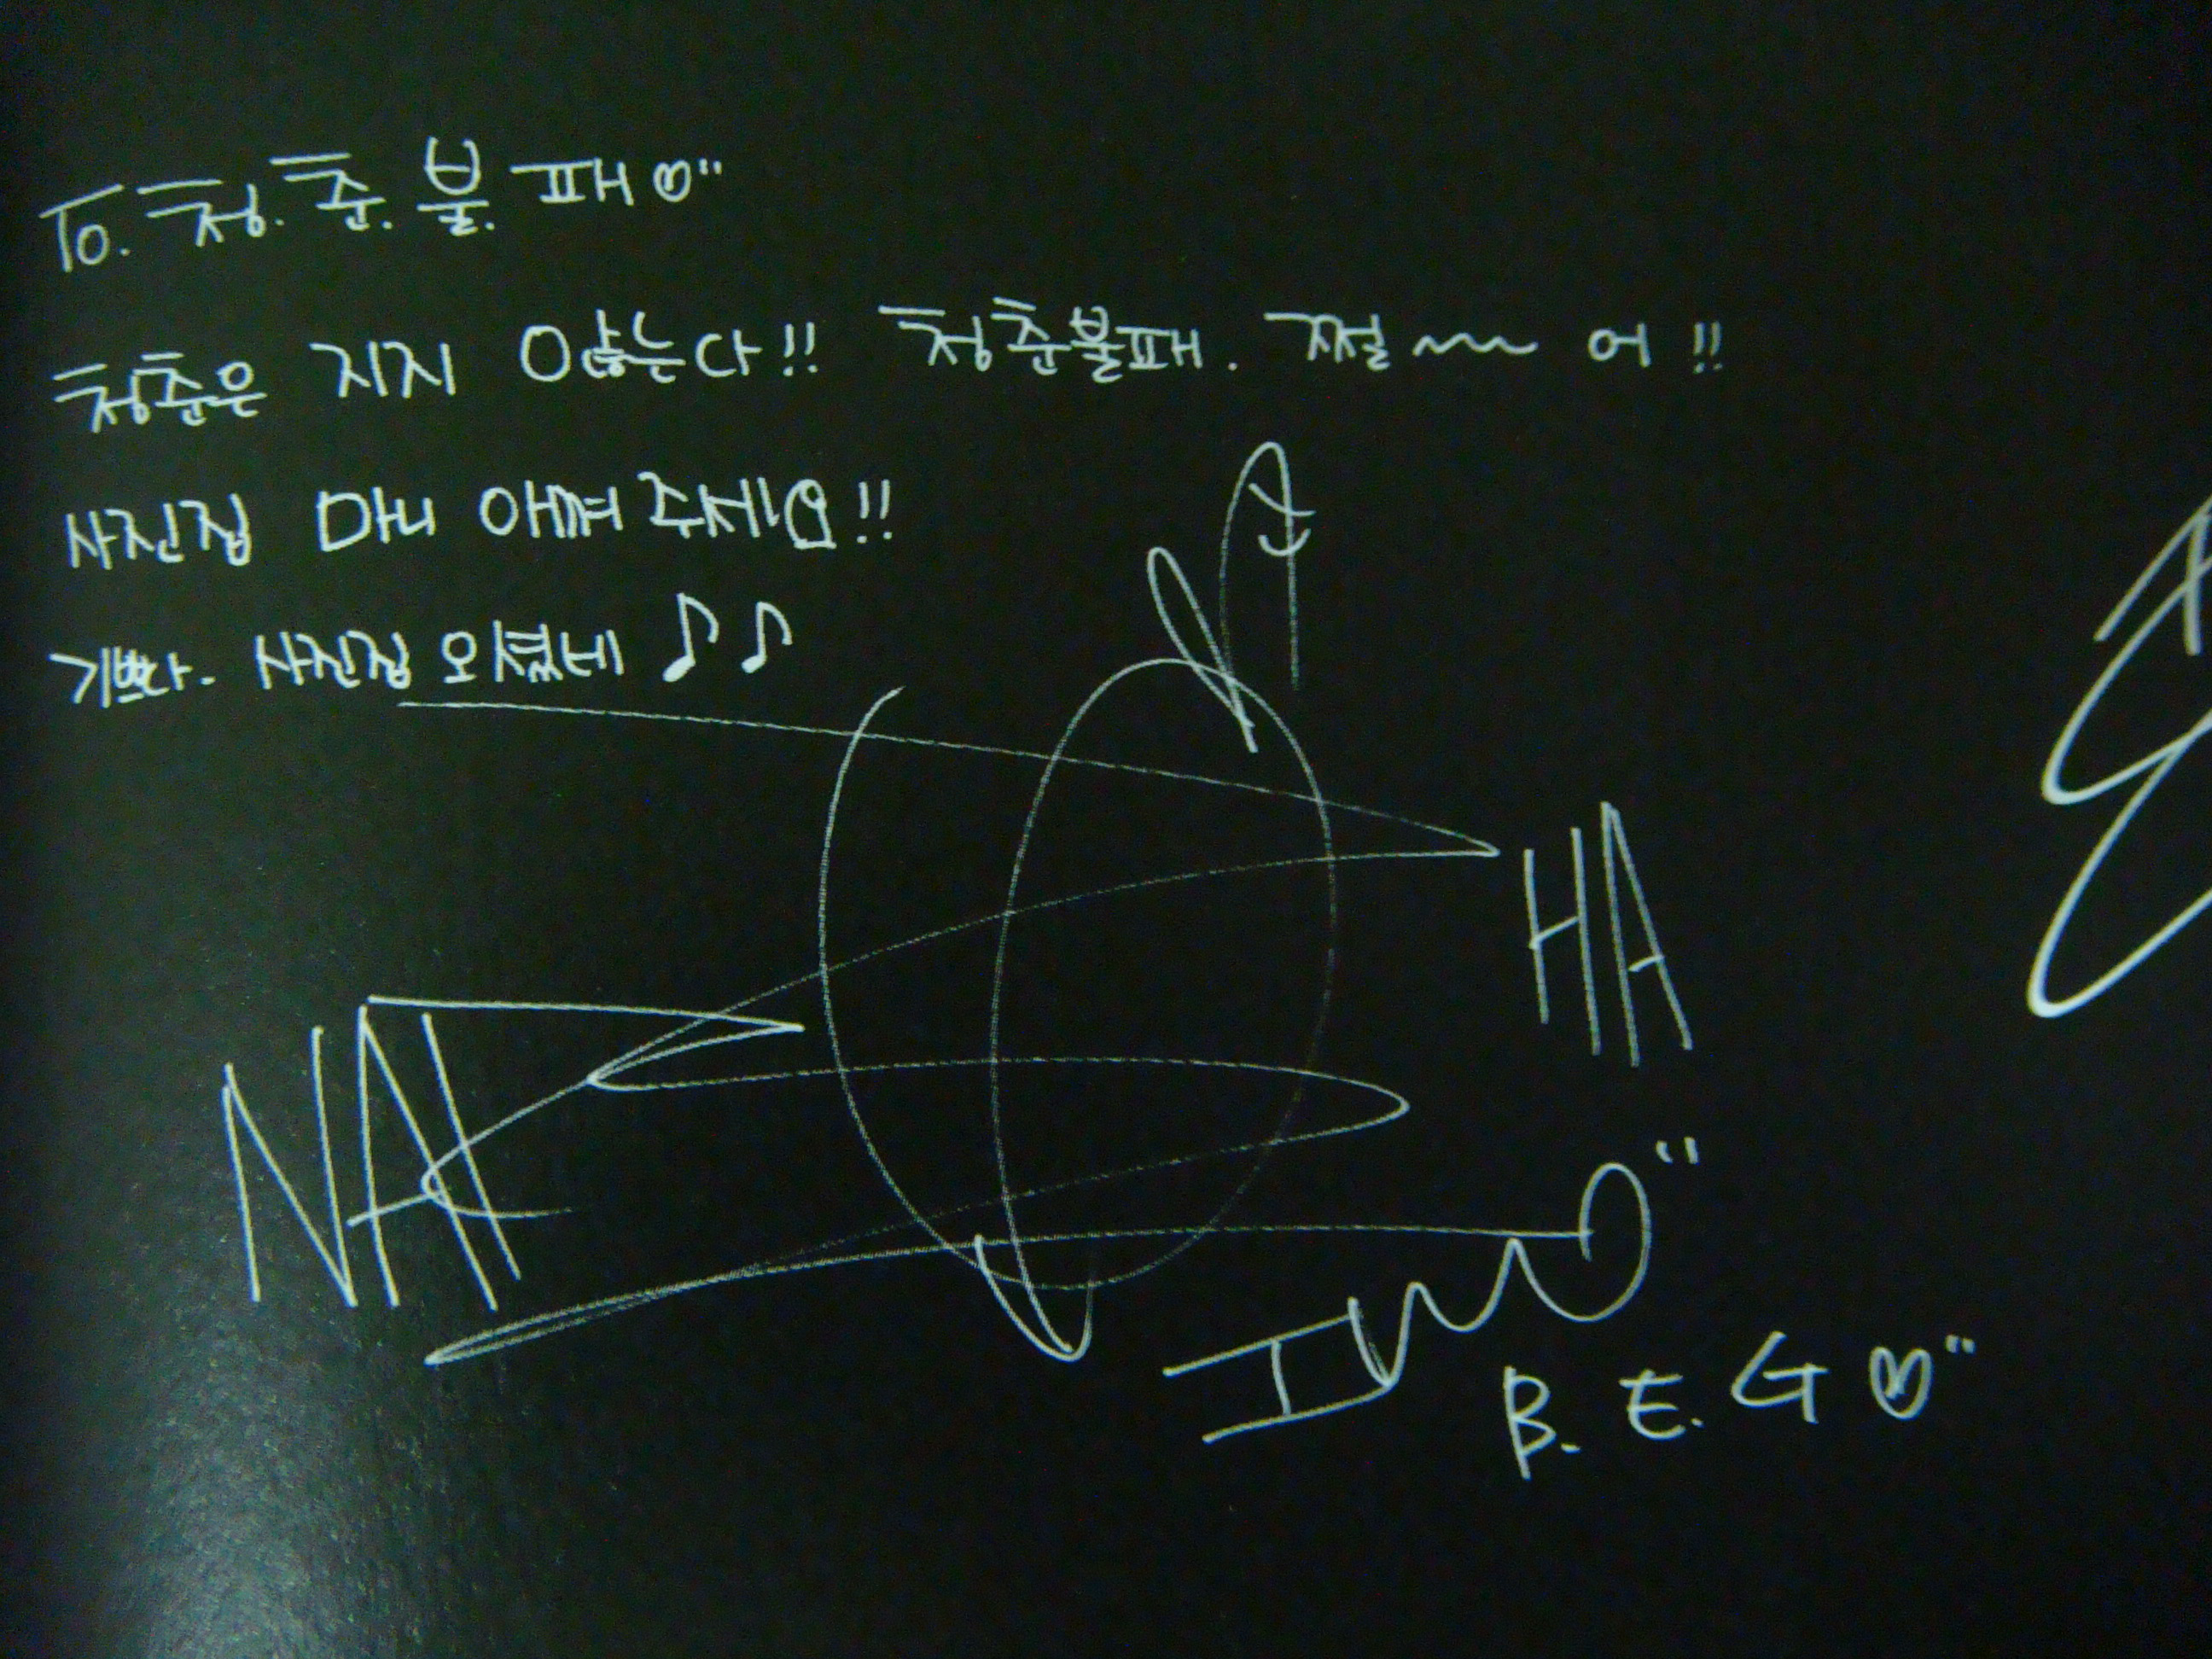 To. 청.춘.불.패♡"
청춘은 지지 않는다!! 청춘불패. 쩔~~~ 어!!
사진집 마니 아껴주세요!!
기쁘다. 사진집 오셨네 ♪♪
HA
NA
B.E.G♡"